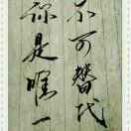 不可替代
你是唯一